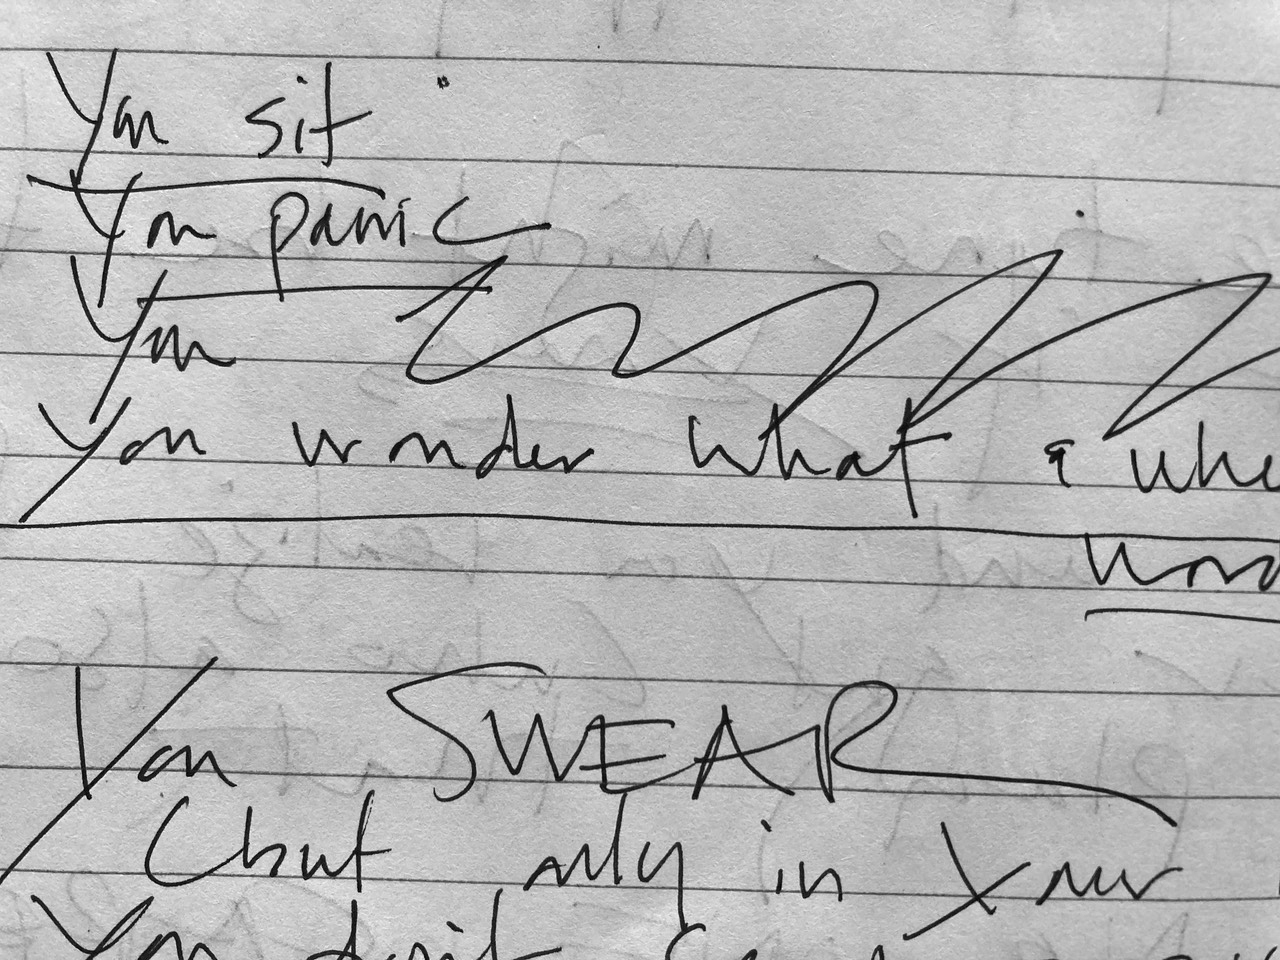 You sit
You panic
You
You wonder what & whe
wond
You SWEAR
(but only in your
You don't